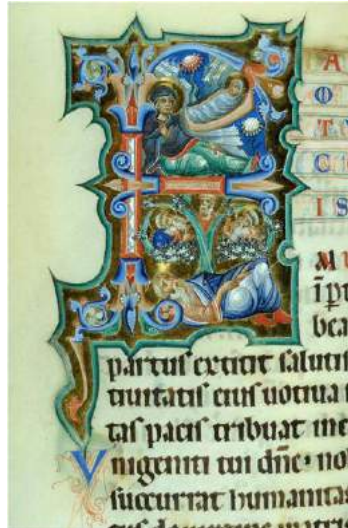 A
O
T
C
IS
bea
partuſ extitit ſalutiſ
tiuitatiſ eiuſ uotiua
taſ paciſ tribuat
Vnigeniti tui dñe· no
ſuccurrat humanitaſ